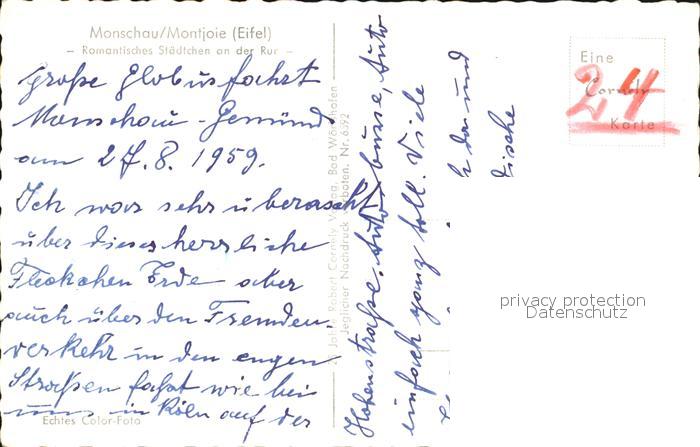 Monschau/Montjoie (Eifel)
– Romantisches Städtchen an der Rur –
große Globusfahrt
Monschau - Gemünd
am 27.8.1959.
Ich war sehr überrascht
über dieses herrliche
Fleckchen Erde aber
auch über den Fremden-
verkehr in den engen
Straßen fast wie bei
uns in Köln auf der
Echtes Color-Foto
Hohenstraße. Autobusse, Auto
einfach ganz toll. Viele
und
tische
Robert Cornely Verlag, Bad Wörishofen
Jeglicher Nachdruck verboten. Nr. 6392
Eine
Cornely
Karte
24
privacy protection
Datenschutz